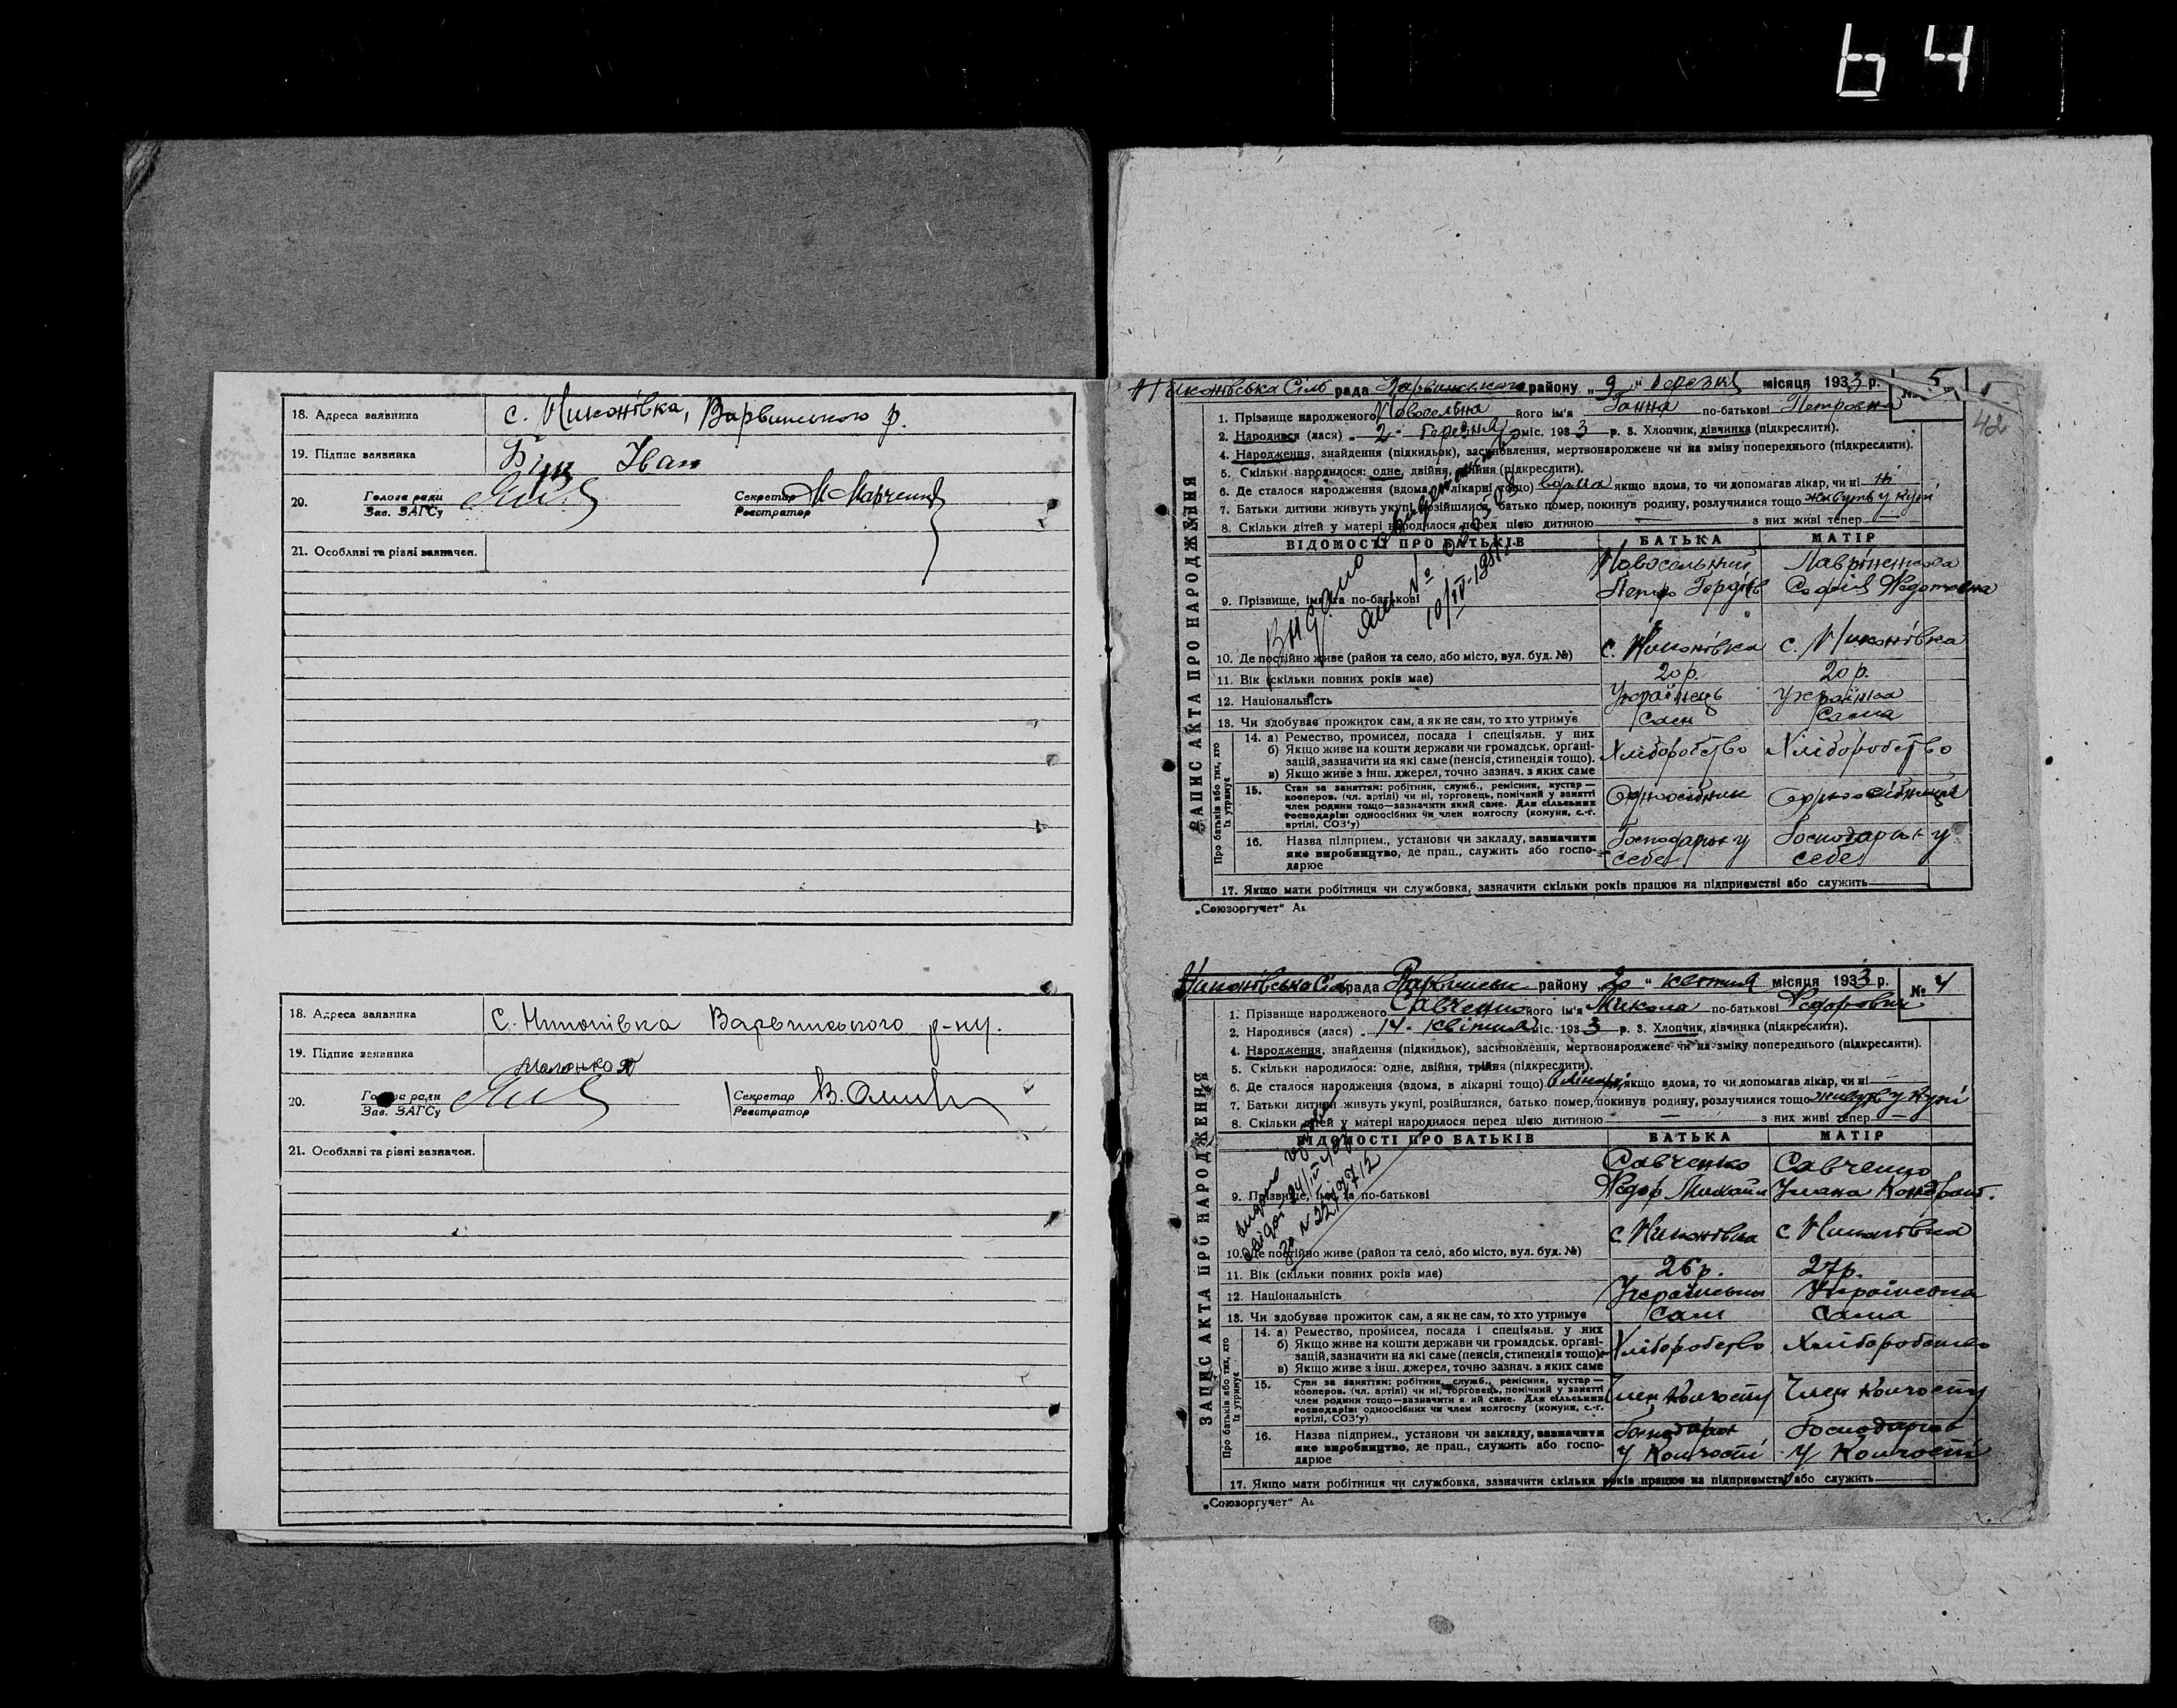 64
18. Адреса заявника с. Никонівка, Варвинського р.
19. Підпис заявника Іван
20. Голова ради Секретар М Марченко
Зав. ЗАГСу Реєстратор
21. Особливі та різні зазначен.
18. Адреса заявника с. Никонівка Варвинського р-ну.
19. Підпис заявника
20. Голова ради Секретар В.
Зав. ЗАГСу Реєстратор
21. Особливі та різні зазначен.
Никонівська Сіль рада Варвинського району „9" березня місяця 1933 р. № 5
42
ЗАПИС АКТА ПРО НАРОДЖЕННЯ
1. Прізвище народженого Новосельна його ім'я Ганна по-батькові Петровна
2. Народився (лася) „2" березня міс. 1933 р. 3. Хлопчик, дівчинка (підкреслити).
4. Народження, знайдення (підкидьок), засиновлення, мертвонароджене чи на зміну попереднього (підкреслити).
5. Скільки народилося: одне, двійня, трійня (підкреслити).
6. Де сталося народження (вдома, в лікарні тощо) вдома якщо вдома, то чи допомагав лікар, чи ні ні
7. Батьки дитини живуть укупі, розійшлися, батько помер, покинув родину, розлучилися тощо живуть у купі
8. Скільки дітей у матері народилося перед цією дитиною — з них живі тепер —
ВІДОМОСТІ ПРО БАТЬКІВ БАТЬКА МАТІР
Новосельний Лавріненкова
9. Прізвище, ім'я та по-батькові Петро Гордів Софія Федотовна
Видано
10/IV-195
10. Де постійно живе (район та село, або місто, вул. буд. №) с. Никонівка с. Никонівка
11. Вік (скільки повних років має) 20 р. 20 р.
12. Національність Українець Українка
13. Чи здобуває прожиток сам, а як не сам, то хто утримує Сам Сама
Про батьків або тих, хто їх утримує
14. а) Ремество, промисел, посада і спеціяльн. у них
б) Якщо живе на кошти держави чи громадськ. органі-
зацій, зазначити на які саме (пенсія, стипендія тощо). Хліборобство Хліборобство
в) Якщо живе з інш. джерел, точно зазнач. з яких саме
15. Стан за заняттям: робітник, служб., ремісник, кустар —
кооперов. (чл. артілі) чи ні, торговець, помічний у занятті
член родини тощо—зазначити який саме. Для сільських Одноосібник Одноосібниця
господарів: одноосібних чи член колгоспу (комуни, с.-г.
артілі, СОЗ'у)
16. Назва підприєм., установи чи закладу, зазначити Господарює у Господарює у
яке виробництво, де прац., служить або госпо- себе себе
дарює
17. Якщо мати робітниця чи службовка, зазначити скільки років працює на підприємстві або служить
„Союзоргучет"
Никонівська Сіль рада Варвинськ району „20" квітня місяця 1933 р. № 4
ЗАПИС АКТА ПРО НАРОДЖЕННЯ
1. Прізвище народженого Савченко його ім'я Микола по-батькові Федорович
2. Народився (лася) „14" квітня міс. 1933 р. 3. Хлопчик, дівчинка (підкреслити).
4. Народження, знайдення (підкидьок), засиновлення, мертвонароджене чи на зміну попереднього (підкреслити).
5. Скільки народилося: одне, двійня, трійня (підкреслити).
6. Де сталося народження (вдома, в лікарні тощо) в лікарні якщо вдома, то чи допомагав лікар, чи ні —
7. Батьки дитини живуть укупі, розійшлися, батько помер, покинув родину, розлучилися тощо живуть у купі
8. Скільки дітей у матері народилося перед цією дитиною — з них живі тепер —
ВІДОМОСТІ ПРО БАТЬКІВ БАТЬКА МАТІР
Савченко Савченко
9. Прізвище, ім'я та по-батькові Федор Михайл Уляна Кондрат.
10. Де постійно живе (район та село, або місто, вул. буд. №) с. Никонівка с. Никонівка
11. Вік (скільки повних років має) 26 р. 27 р.
12. Національність
13. Чи здобуває прожиток сам, а як не сам, то хто утримує Сам Сама
Про батьків або тих, хто їх утримує
14. а) Ремество, промисел, посада і спеціяльн. у них
б) Якщо живе на кошти держави чи громадськ. органі-
зацій, зазначити на які саме (пенсія, стипендія тощо). Хліборобство Хліборобство
в) Якщо живе з інш. джерел, точно зазнач. з яких саме
15. Стан за заняттям: робітник, служб., ремісник, кустар —
кооперов. (чл. артілі) чи ні, торговець, помічний у занятті
член родини тощо—зазначити який саме. Для сільських Член Колгоспу Член Колгоспу
господарів: одноосібних чи член колгоспу (комуни, с.-г.
артілі, СОЗ'у)
16. Назва підприєм., установи чи закладу, зазначити Господарює Господарює
яке виробництво, де прац., служить або госпо- у Колгоспі у Колгоспі
дарює
17. Якщо мати робітниця чи службовка, зазначити скільки років працює на підприємстві або служить
„Союзоргучет"